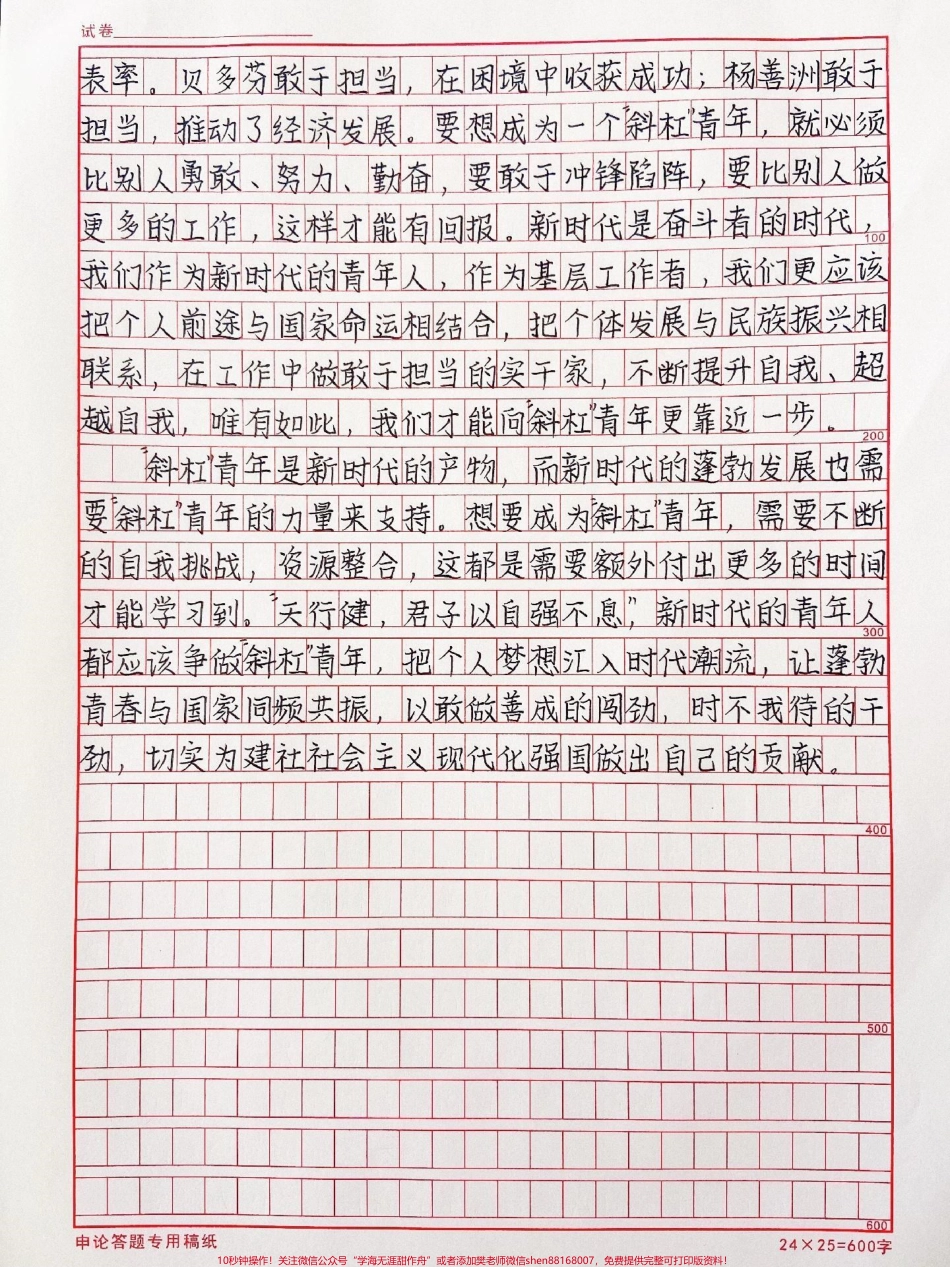 试卷
表率。贝多芬敢于担当，在困境中收获成功；杨善洲敢于
担当，推动了经济发展。要想成为一个“斜杠”青年，就必须
比别人勇敢、努力、勤奋，要敢于冲锋陷阵，要比别人做
更多的工作，这样才能有回报。新时代是奋斗者的时代，
100
我们作为新时代的青年人，作为基层工作者，我们更应该
把个人前途与国家命运相结合，把个体发展与民族振兴相
联系，在工作中做敢于担当的实干家，不断提升自我、超
越自我，唯有如此，我们才能向“斜杠”青年更靠近一步。
200
“斜杠”青年是新时代的产物，而新时代的蓬勃发展也需
要“斜杠”青年的力量来支持。想要成为“斜杠”青年，需要不断
的自我挑战，资源整合，这都是需要额外付出更多的时间
才能学习到。“天行健，君子以自强不息”，新时代的青年人
300
都应该争做“斜杠”青年，把个人梦想汇入时代潮流，让蓬勃
青春与国家同频共振，以敢做善成的闯劲，时不我待的干
劲，切实为建社社会主义现代化强国做出自己的贡献。
400
500
600
申论答题专用稿纸
24×25=600字
10秒钟操作！关注微信公众号“学海无涯甜作舟”或者添加樊老师微信shen88168007，免费提供完整可打印版资料！